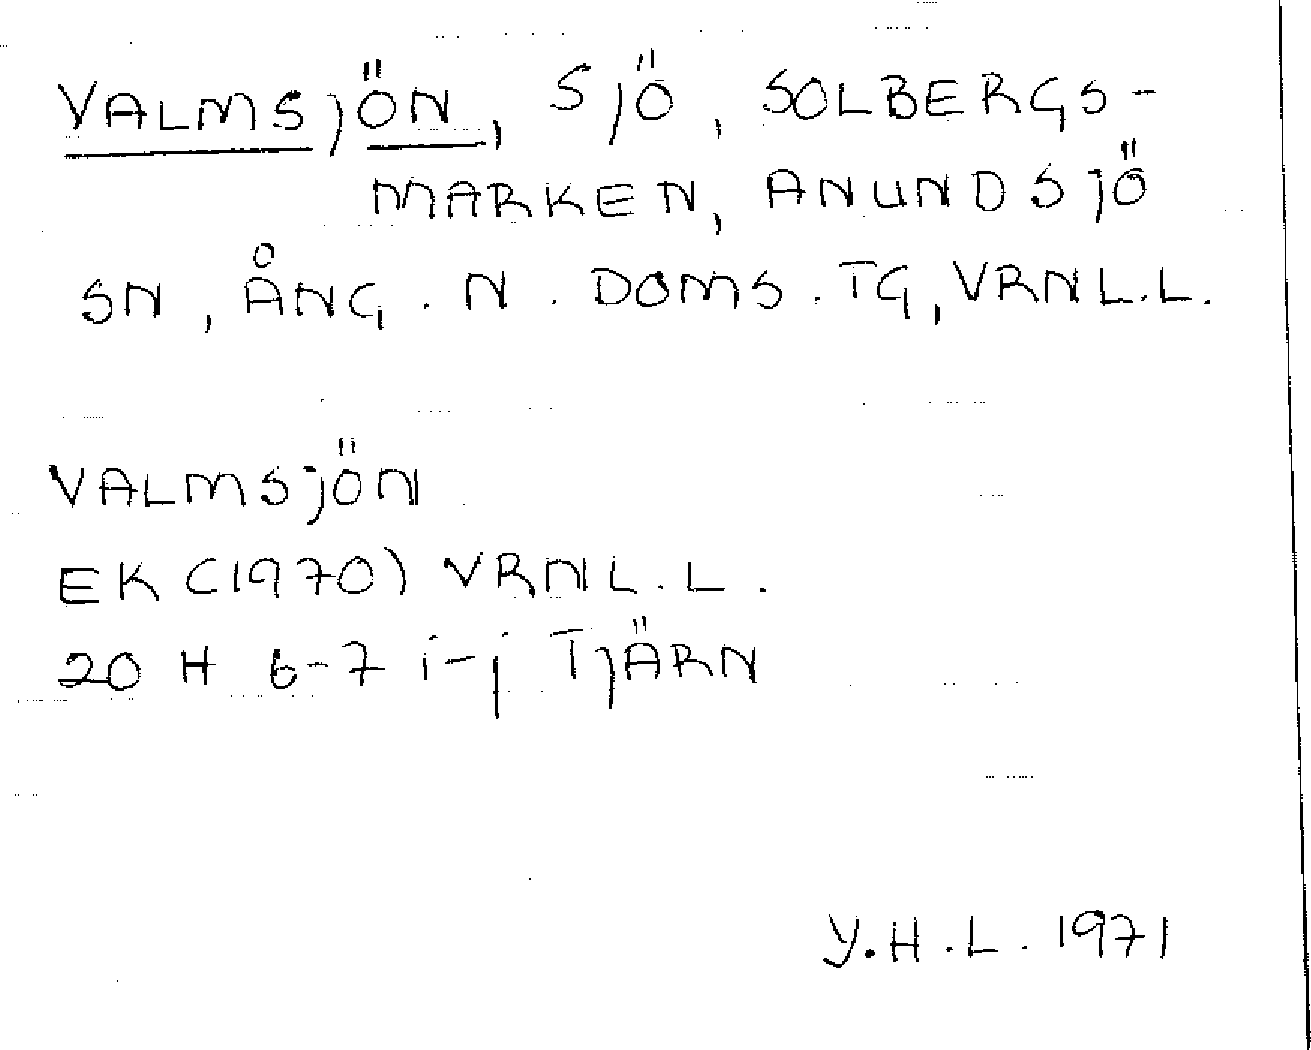 VALMSjÖN, SjÖ, SOLBERGS-
MARKEN, ANUNDSjÖ
SN, ÅNG. N. DOMS. TG, VRNL.L.
VALMSjÖN
EK (1970) VRNL.L.
20 H 6-7 i-j TjÄRN
Y.H.L. 1971